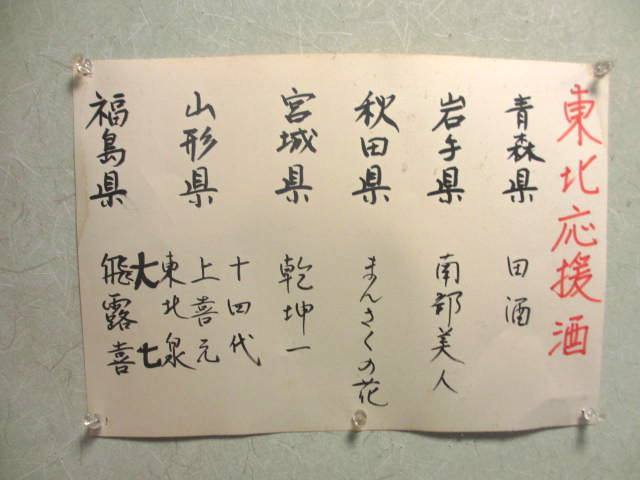 東北応援酒
青森県 田酒
岩手県 南部美人
秋田県 まんさくの花
宮城県 乾坤一
山形県 十四代
上喜元
東北泉
大七
福島県 飛露喜